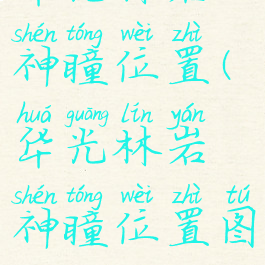 shén tóng wèi zhì
神瞳位置(
huá guāng lín yán
华光林岩
shén tóng wèi zhì tú
神瞳位置图